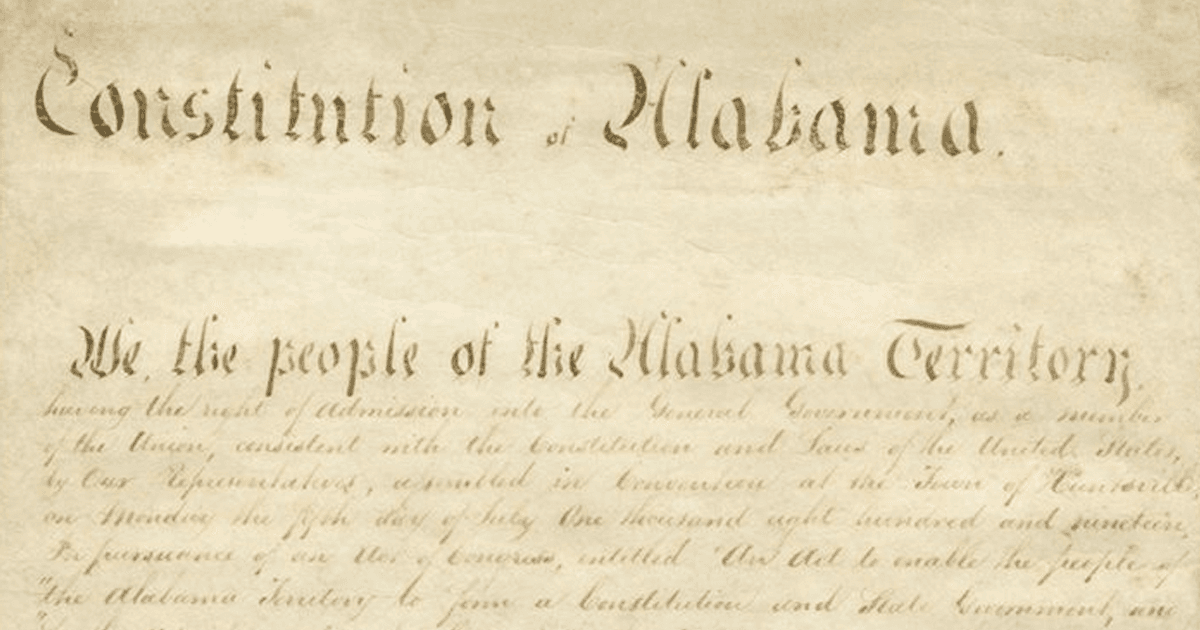 Constitution of Alabama.
We, the people of the Alabama Territory,
having the right of admission into the General Government, as a member
of the Union, consistent with the Constitution and Laws of the United States,
by Our Representatives, assembled in Convention at the Town of Huntsville
on Monday the fifth day of July One thousand eight hundred and nineteen,
In pursuance of an Act of Congress, entitled "An Act to enable the people of
"the Alabama Territory to form a Constitution and State Government, and